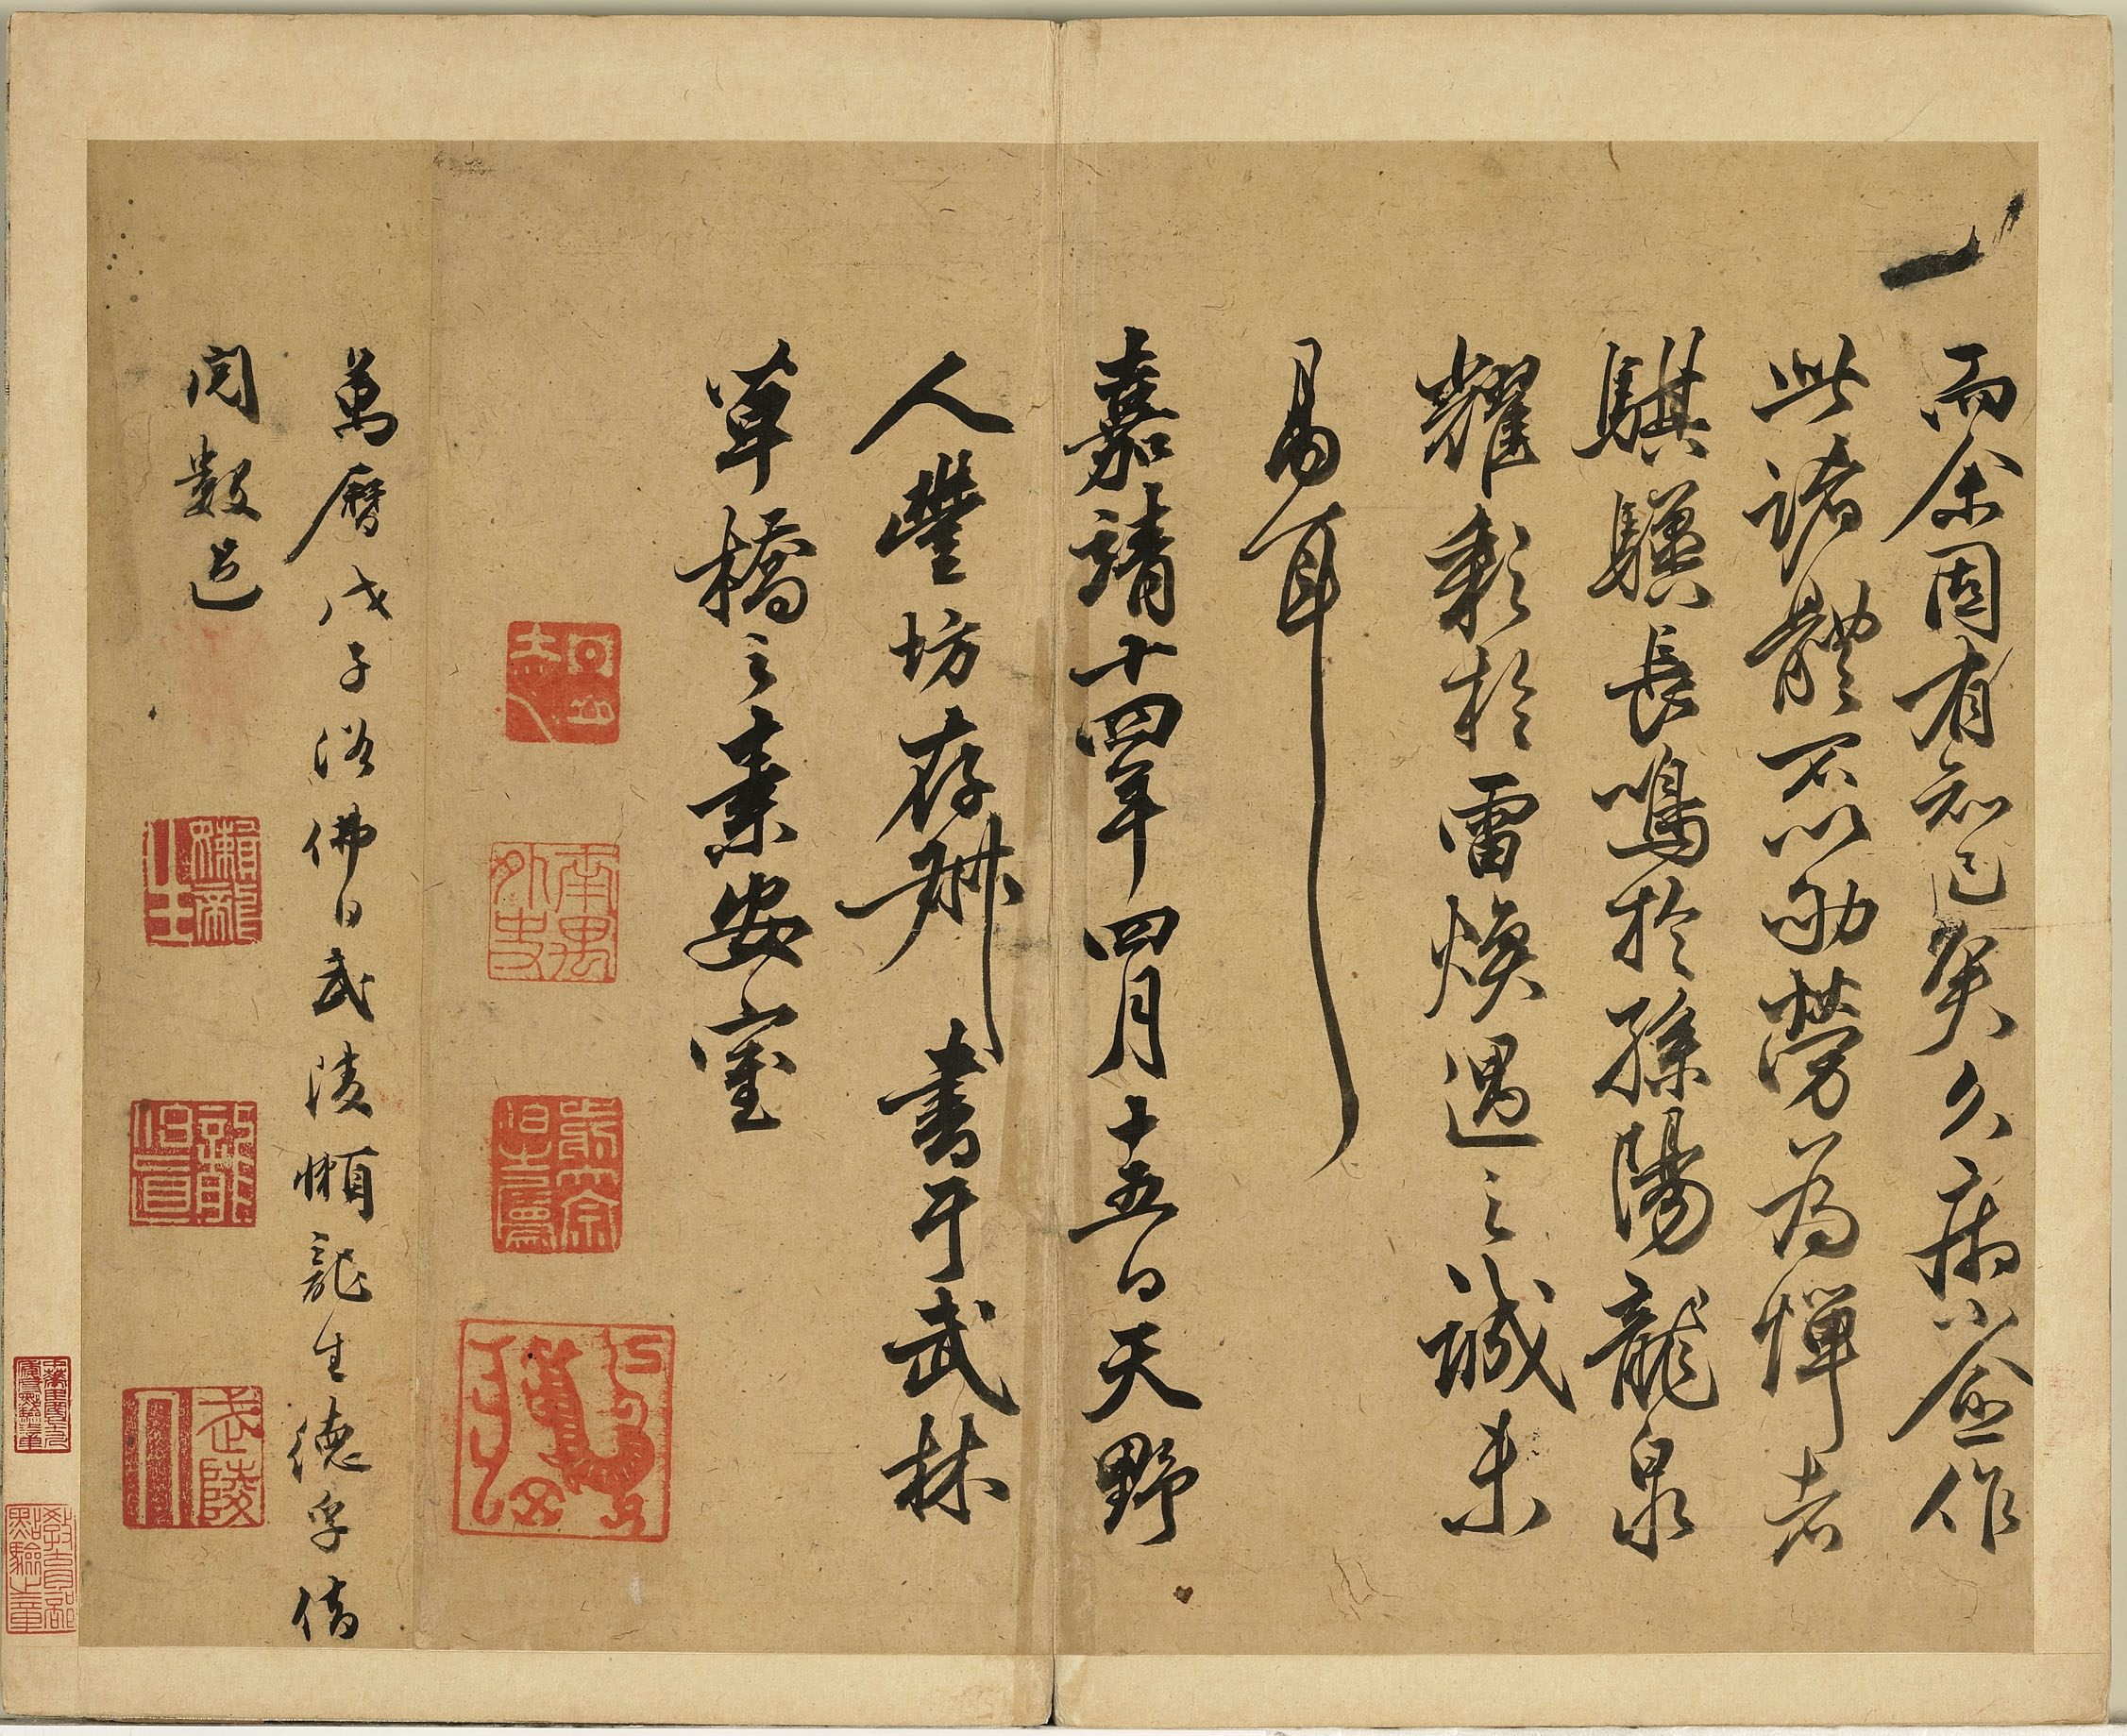 而余固有知己矣久病小僉作
此諸體不以劬勞為憚者
騏驥長鳴於孫陽龍泉
耀彩於雷煥遇之誠未
易耳
嘉靖十四年四月十五日天野
人豐坊存𠦑書于武林
草橋之素安室
萬曆戊子浴佛日武陵懶龍生德孚借
閱數過
南禺外史
武陵
教育部點驗之章